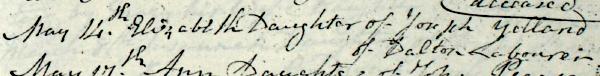 deceased
May 14.th Elizabeth Daughter of Joseph Yelland
of Dalton Labourer
May 17.th Ann Daughter of